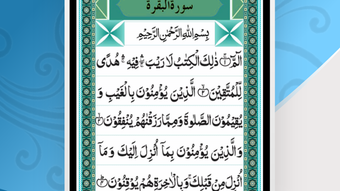 سورة البقرة
بِسْمِ اللّٰهِ الرَّحْمٰنِ الرَّحِيْمِ
الٓمّٓ ۚ ذٰلِكَ الْكِتٰبُ لَا رَيْبَ ۛ فِيْهِ ۛ هُدًى
لِّلْمُتَّقِيْنَ ۙ الَّذِيْنَ يُؤْمِنُوْنَ بِالْغَيْبِ وَ
يُقِيْمُوْنَ الصَّلٰوةَ وَمِمَّا رَزَقْنٰهُمْ يُنْفِقُوْنَ ۙ
وَالَّذِيْنَ يُؤْمِنُوْنَ بِمَآ اُنْزِلَ اِلَيْكَ وَ مَآ
اُنْزِلَ مِنْ قَبْلِكَ ۚ وَبِالْاٰخِرَةِ هُمْ يُوْقِنُوْنَ